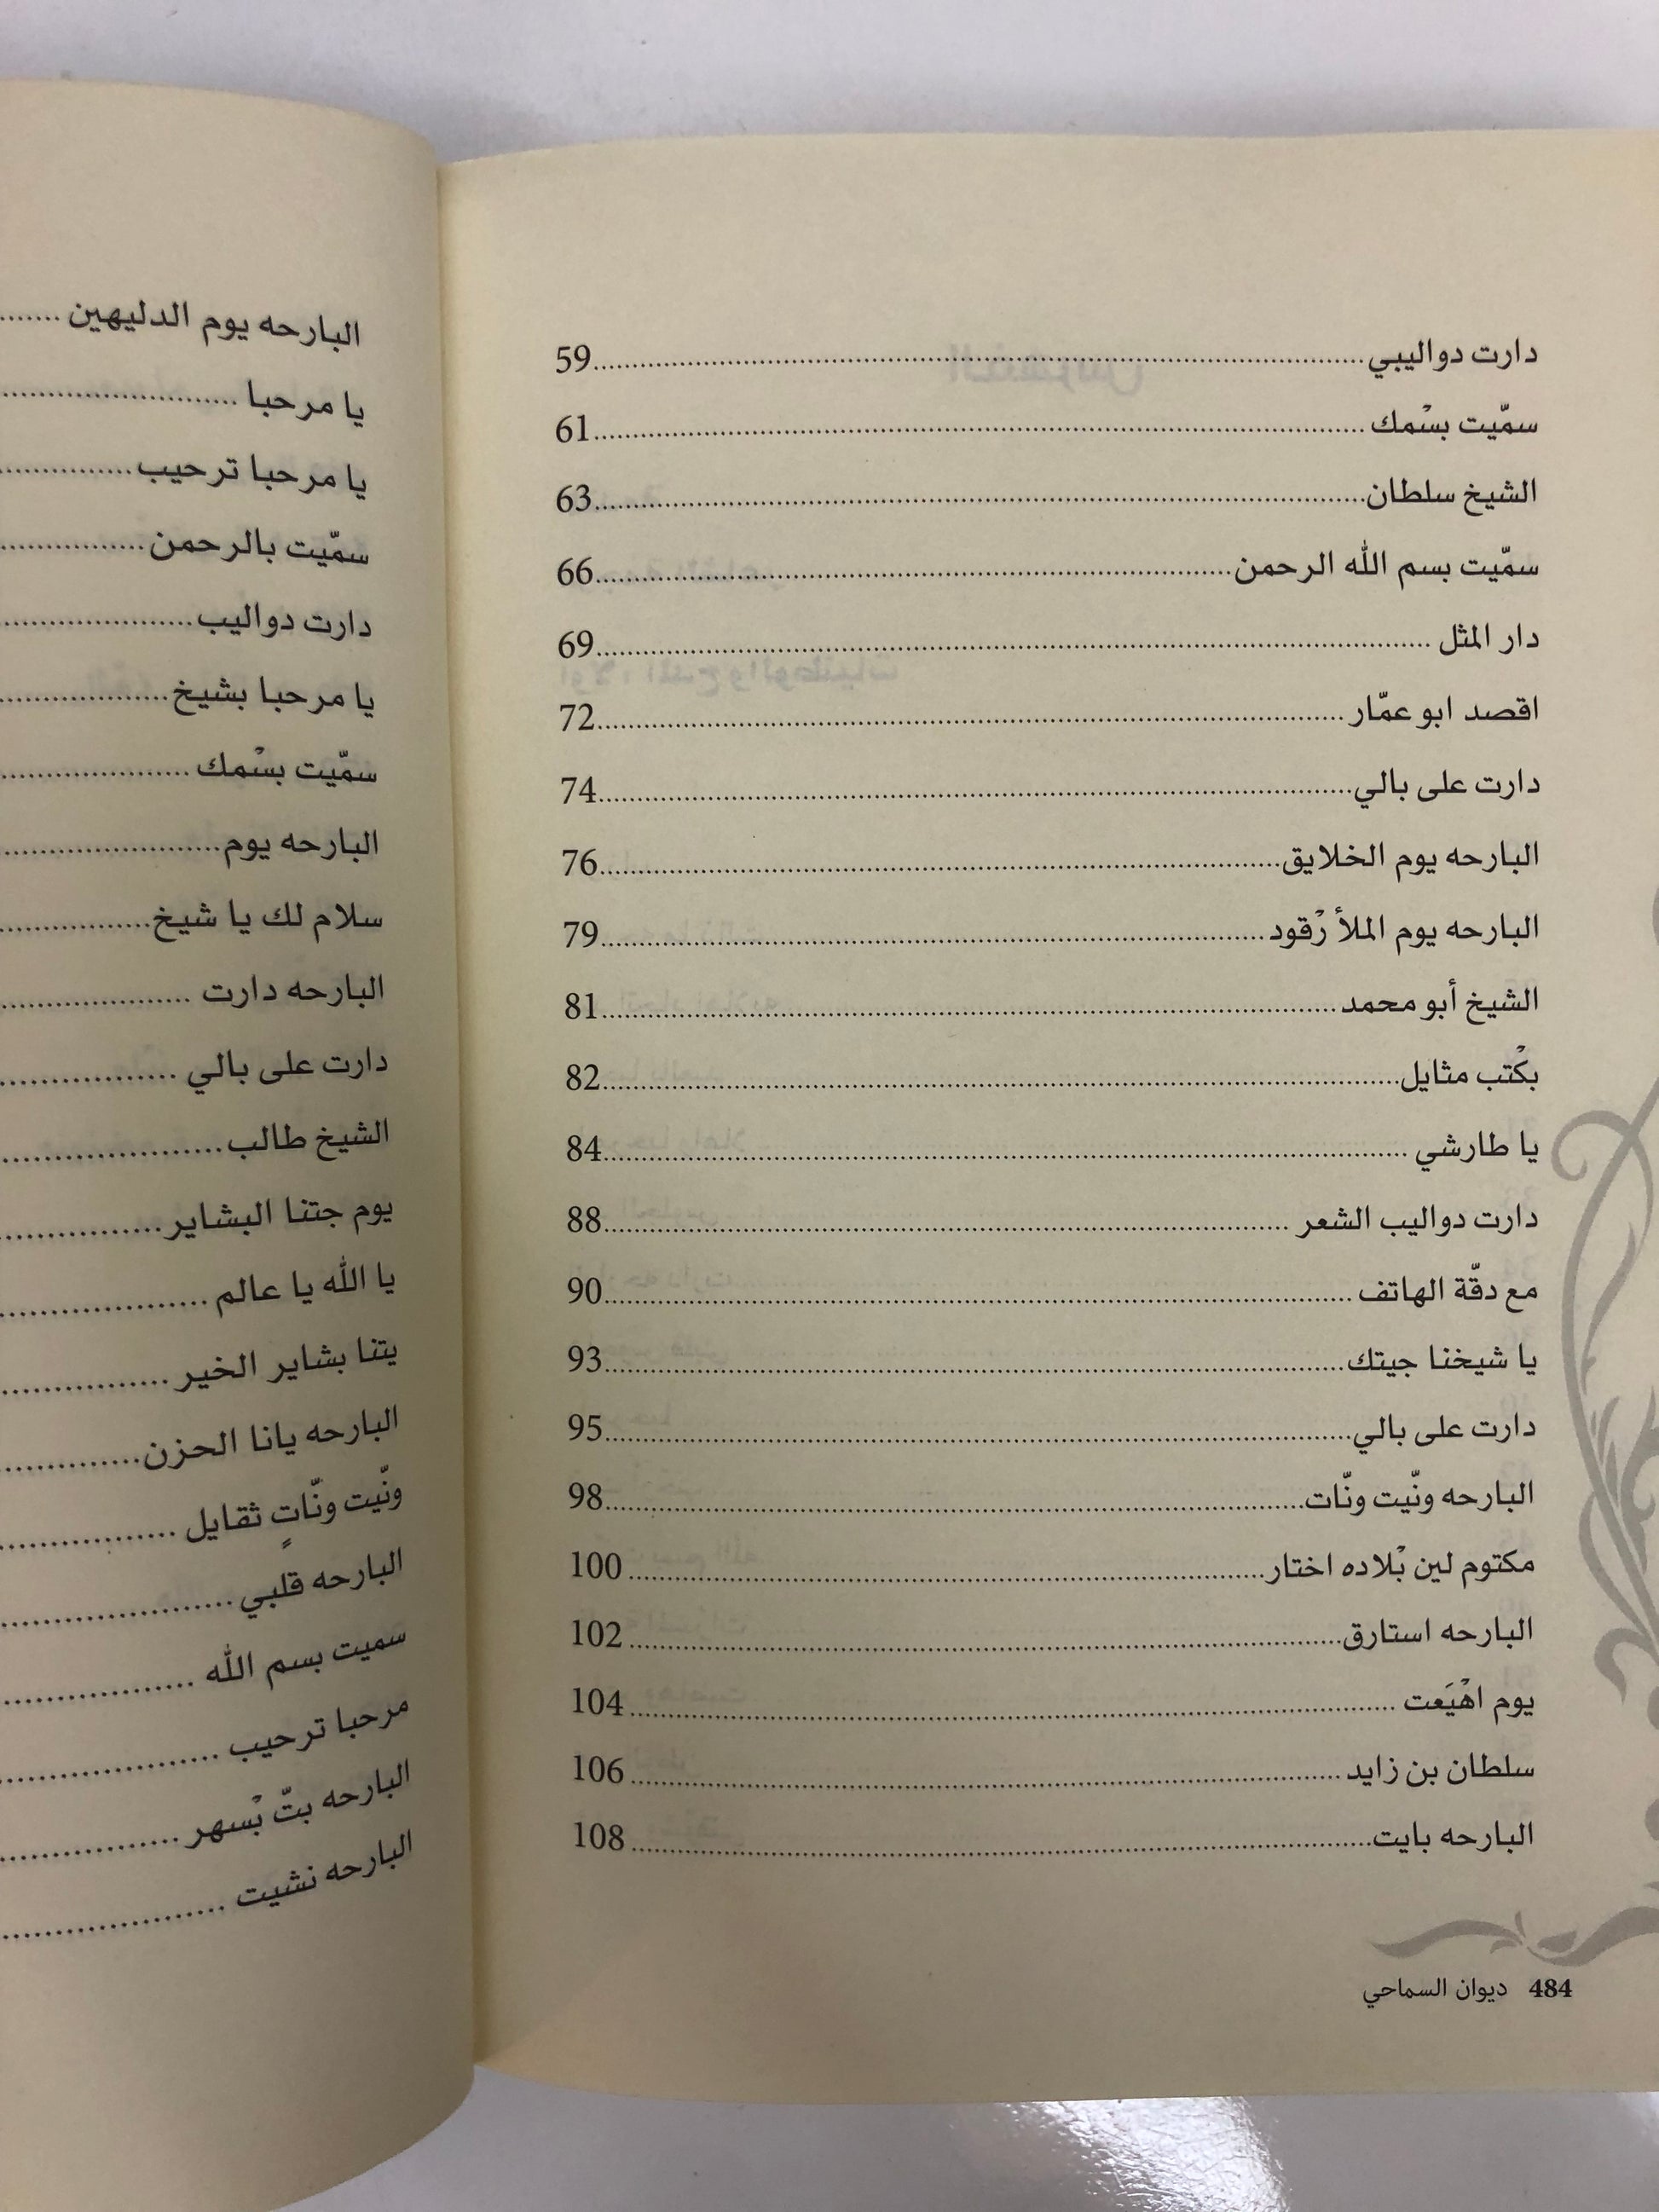 دارت دواليبي 59
سمّيت بسْمك 61
الشيخ سلطان 63
سمّيت بسم الله الرحمن 66
دار المثل 69
اقصد ابو عمّار 72
دارت على بالي 74
البارحه يوم الخلايق 76
البارحه يوم الملأ رْقود 79
الشيخ أبو محمد 81
بكْتب مثايل 82
يا طارشي 84
دارت دواليب الشعر 88
مع دقّة الهاتف 90
يا شيخنا جيتك 93
دارت على بالي 95
البارحه ونّيت ونّات 98
مكتوم لين بْلاده اختار 100
البارحه استارق 102
يوم اهْيَعت 104
سلطان بن زايد 106
البارحه بايت 108
484 ديوان السماحي
البارحه يوم الدليهين
يا مرحبا
يا مرحبا ترحيب
سمّيت بالرحمن
دارت دواليب
يا مرحبا بشيخ
سمّيت بسْمك
البارحه يوم
سلام لك يا شيخ
البارحه دارت
دارت على بالي
الشيخ طالب
يوم جتنا البشاير
يا الله يا عالم
يتنا بشاير الخير
البارحه يانا الحزن
ونّيت ونّاتٍ ثقايل
البارحه قلبي
سميت بسم الله
مرحبا ترحيب
البارحه بتّ بْسهر
البارحه نشيت